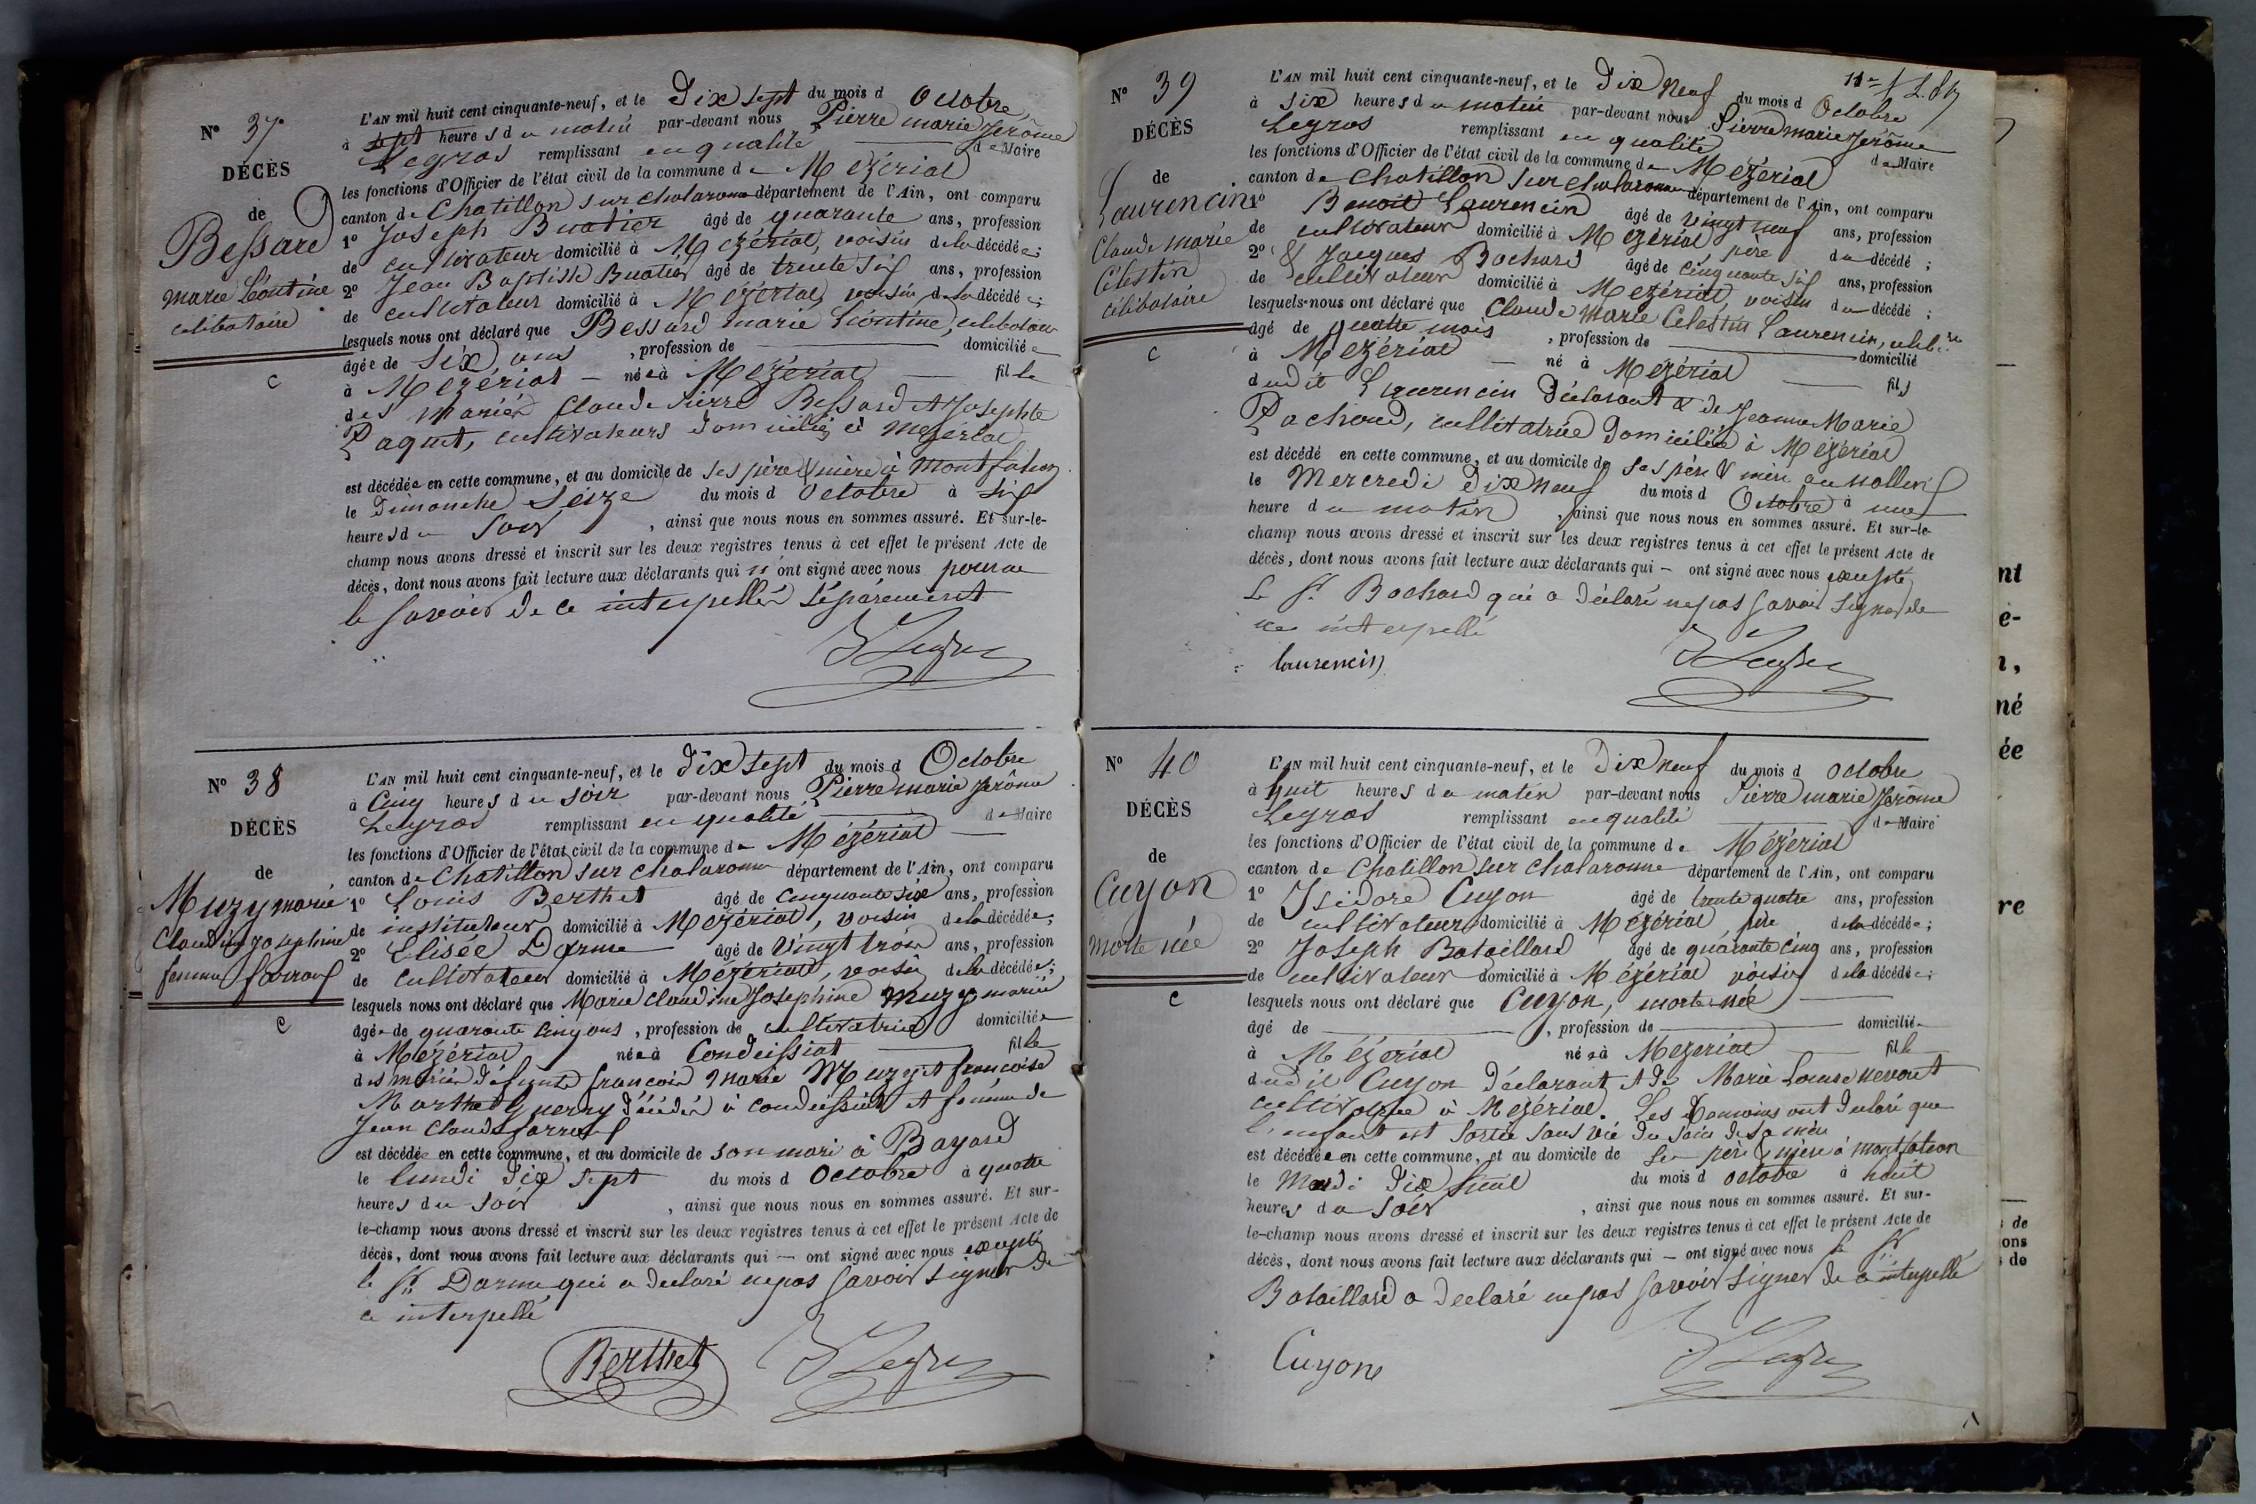 N° 37
DÉCÈS
de
Bessard
marie Léontine
célibataire
C
L'AN mil huit cent cinquante-neuf, et le Dix sept du mois d Octobre
à sept heures du matin par-devant nous Pierre marie Jérôme
Legros remplissant en qualité de Maire
les fonctions d'Officier de l'état civil de la commune de Mézériat
canton de Chatillon sur chalaronne département de l'Ain, ont comparu
1° Joseph Buatier âgé de quarante ans, profession
de cultivateur domicilié à Mézériat, voisin de la décédée;
2° Jean Baptiste Buatier âgé de trente six ans, profession
de cultivateur domicilié à Mézériat, voisin de la décédée;
lesquels nous ont déclaré que Bessard marie Léontine, célibataire
âgée de Six ans, profession de domiciliée
à Mézériat née à Mézériat fille
des mariés Claude Pierre Bessard et Josephte
Paquet, cultivateurs domiciliés à Mézériat
est décédée en cette commune, et au domicile de ses père & mère à
le Dimanche Seize du mois d Octobre à six
heures du Soir, ainsi que nous nous en sommes assuré. Et sur-le-
champ nous avons dressé et inscrit sur les deux registres tenus à cet effet le présent Acte de
décès, dont nous avons fait lecture aux déclarants qui n'ont signé avec nous pour ne
le savoir de ce interpellés séparément
Legros
N° 38
DÉCÈS
de
Muzy marie
Claudine Josephine
femme
C
L'AN mil huit cent cinquante-neuf, et le Dix sept du mois d Octobre
à Cinq heures du soir par-devant nous Pierre marie Jérôme
Legros remplissant en qualité de Maire
les fonctions d'Officier de l'état civil de la commune de Mézériat
canton de Chatillon sur chalaronne département de l'Ain, ont comparu
1° Louis Berthet âgé de cinquante six ans, profession
de instituteur domicilié à Mézériat, voisin de la décédée;
2° Elisée Darme âgé de Vingt trois ans, profession
de cultivateur domicilié à Mézériat, voisin de la décédée;
lesquels nous ont déclaré que Marie Claudine Josephine Muzy mariée
âgée de quarante cinq ans, profession de cultivatrice domiciliée
à Mézériat née à Condeissiat fille
des mariés défunts francois Marie Muzy et francoise
Marthe Guerry décédés à condeissiat et femme de
Jean Claude
est décédée en cette commune, et au domicile de son mari à Bayard
le lundi dix sept du mois d Octobre à quatre
heures du soir, ainsi que nous nous en sommes assuré. Et sur-
le-champ nous avons dressé et inscrit sur les deux registres tenus à cet effet le présent Acte de
décès, dont nous avons fait lecture aux déclarants qui — ont signé avec nous excepté
le Sr Darme qui a déclaré ne pas savoir signer de
ce interpellé
Berthet Legros
N° 39
DÉCÈS
de
Laurencin
Claude marie
Célestin
célibataire
C
L'AN mil huit cent cinquante-neuf, et le Dix Neuf du mois d Octobre
à six heures du matin par-devant nous Pierre marie Jérôme
Legros remplissant en qualité de Maire
les fonctions d'Officier de l'état civil de la commune de Mézériat
canton de Chatillon sur chalaronne département de l'Ain, ont comparu
1° Benoit Laurencin âgé de vingt neuf ans, profession
de cultivateur domicilié à Mézériat, père du décédé;
2° & Jacques Bochard âgé de cinquante six ans, profession
de cultivateur domicilié à Mézériat, voisin du décédé;
lesquels nous ont déclaré que Claude Marie Célestin Laurencin, célibre
âgé de quatre mois, profession de domicilié
à Mézériat né à Mézériat fils
dudit Laurencin Déclarant & de Jeanne Marie
Pachoud, cultivatrice domiciliée à Mézériat
est décédé en cette commune, et au domicile de ses père & mère
le Mercredi dix neuf du mois d Octobre à une
heure du matin, ainsi que nous nous en sommes assuré. Et sur-le-
champ nous avons dressé et inscrit sur les deux registres tenus à cet effet le présent Acte de
décès, dont nous avons fait lecture aux déclarants qui — ont signé avec nous excepté
le Sr Bochard qui a déclaré ne pas savoir signer de
ce interpellé
laurencin Legros
N° 40
DÉCÈS
de
Cuyon
morte née
C
L'AN mil huit cent cinquante-neuf, et le Dix neuf du mois d octobre
à huit heures du matin par-devant nous Pierre marie Jérôme
Legros remplissant en qualité de Maire
les fonctions d'Officier de l'état civil de la commune de Mézériat
canton de Chatillon sur chalaronne département de l'Ain, ont comparu
1° Isidore Cuyon âgé de trente quatre ans, profession
de cultivateur domicilié à Mézériat père de la décédée;
2° Joseph Bataillard âgé de quarante cinq ans, profession
de cultivateur domicilié à Mézériat voisin de la décédée;
lesquels nous ont déclaré que Cuyon, morte née
âgé de , profession de domiciliée
à Mézériat née à Mézériat fille
dudit Cuyon déclarant et de Marie Louise
cultivatrice à Mézériat. Les témoins ont déclaré que
l'enfant est sortie sans vie du sein de sa mère
est décédée en cette commune, et au domicile de ses père & mère à
le Mardi dix huit du mois d octobre à huit
heures du soir, ainsi que nous nous en sommes assuré. Et sur-
le-champ nous avons dressé et inscrit sur les deux registres tenus à cet effet le présent Acte de
décès, dont nous avons fait lecture aux déclarants qui — ont signé avec nous le Sr
Bataillard a déclaré ne pas savoir signer de ce interpellé
Cuyon Legros